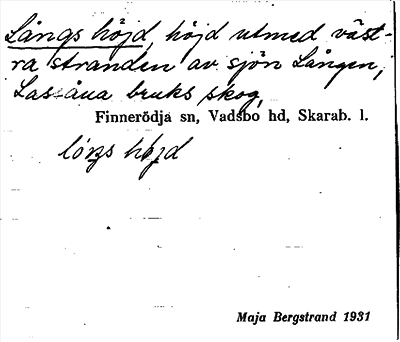 Långs höjd, höjd utmed väst-
ra stranden av sjön Lången,
Lassåna bruks skog,
Finnerödja sn, Vadsbo hd, Skarab. l.
höjd
Maja Bergstrand 1931